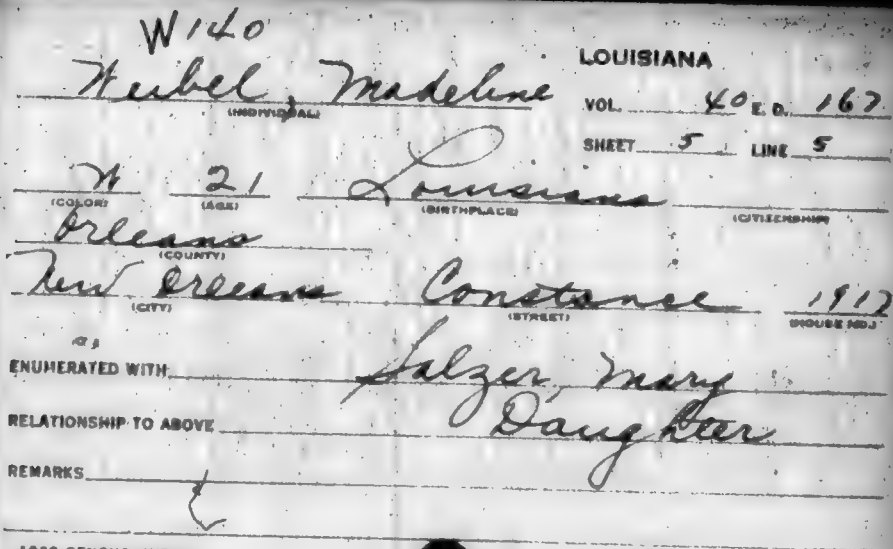 W140
LOUISIANA
Weibel, Madeline
(INDIVIDUAL)
VOL. 40 E. D. 167
SHEET 5 LINE 5
W 21 Louisiana
(COLOR) (AGE) (BIRTHPLACE) (CITIZENSHIP)
Orleans
(COUNTY)
New Orleans Constance 1917
(CITY) (STREET) (HOUSE NO.)
ENUMERATED WITH Salzer, Mary
RELATIONSHIP TO ABOVE Daughter
REMARKS